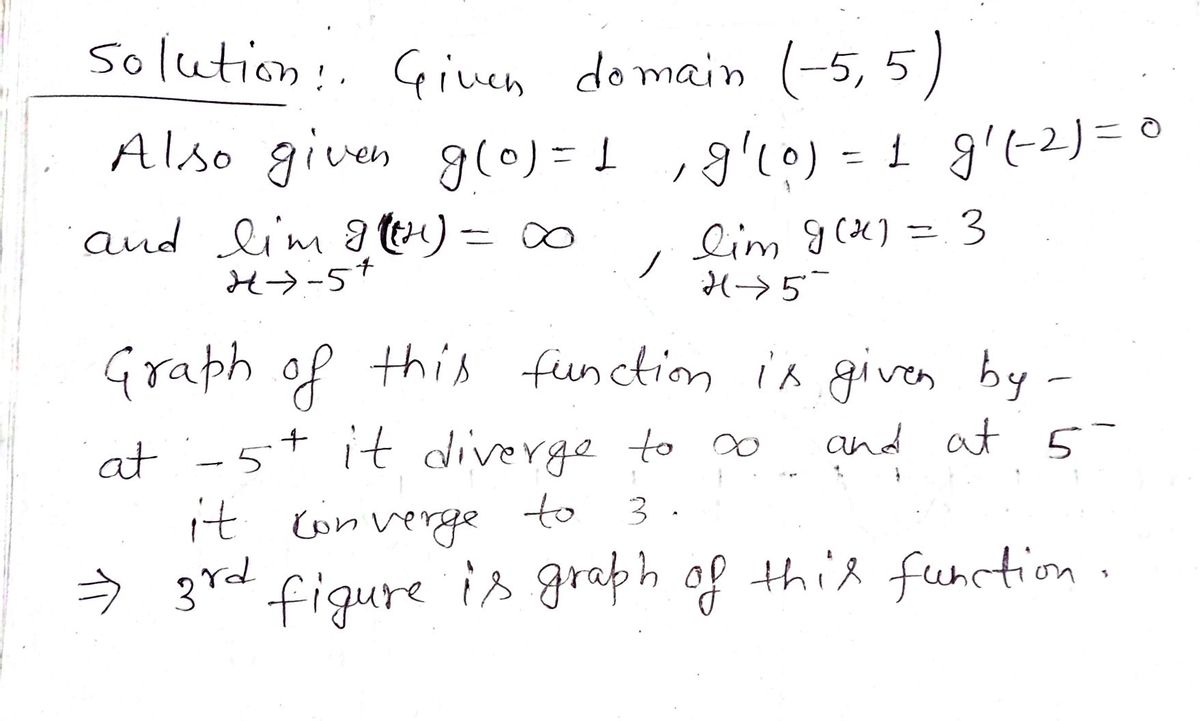 Solution:. Given domain (-5, 5)
Also given g(0) = 1 , g'(0) = 1 g'(-2) = 0
and lim g(x) = ∞ , lim g(x) = 3
x→-5⁺ x→5⁻
Graph of this function is given by -
at -5⁺ it diverge to ∞ and at 5⁻
it converge to 3.
⇒ 3rd figure is graph of this function.